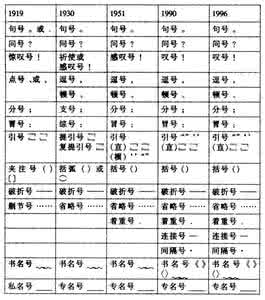 1919 1930 1951 1990 1996
句号 。或 . 句号 。 句号 。 句号 。 句号 。
问号 ? 问号 ? 问号 ? 问号 ? 问号 ?
惊叹号 ! 祈使或 感叹号 ! 叹号 ! 叹号 !
感叹号 !
点号 、或 , 逗号 , 逗号 , 逗号 , 逗号 ,
顿号 、 顿号 、 顿号 、 顿号 、
分号 ; 支号 ; 分号 ; 分号 ; 分号 ;
冒号 : 综号 : 冒号 : 冒号 : 冒号 :
引号 ﹃﹄ ﹁﹂ 提引号 ﹁﹂ 引号 引号 “” ‘’ 引号 “” ‘’
复提引号 ﹃﹄ (直) (直) (直)
(横)
夹注号 () 括弧 () 或 括号 () 括号 () 括号 ()
破折号 —— 破折号 —— 破折号 —— 破折号 —— 破折号 ——
删节号 …… 省略号 …… 省略号 …… 省略号 …… 省略号 ……
着重号 . 着重号 . 着重号 .
连接号 — 连接号 —
间隔号 · 间隔号 ·
书名号 ﹏﹏ 书名号 ﹏﹏ 书名号 ﹏﹏ 书名号《》 书名号《》
〈〉 〈〉
私名号 ＿＿ 专名号 ＿＿ 专名号 ＿＿ 专名号 ＿＿ 专名号 ＿＿